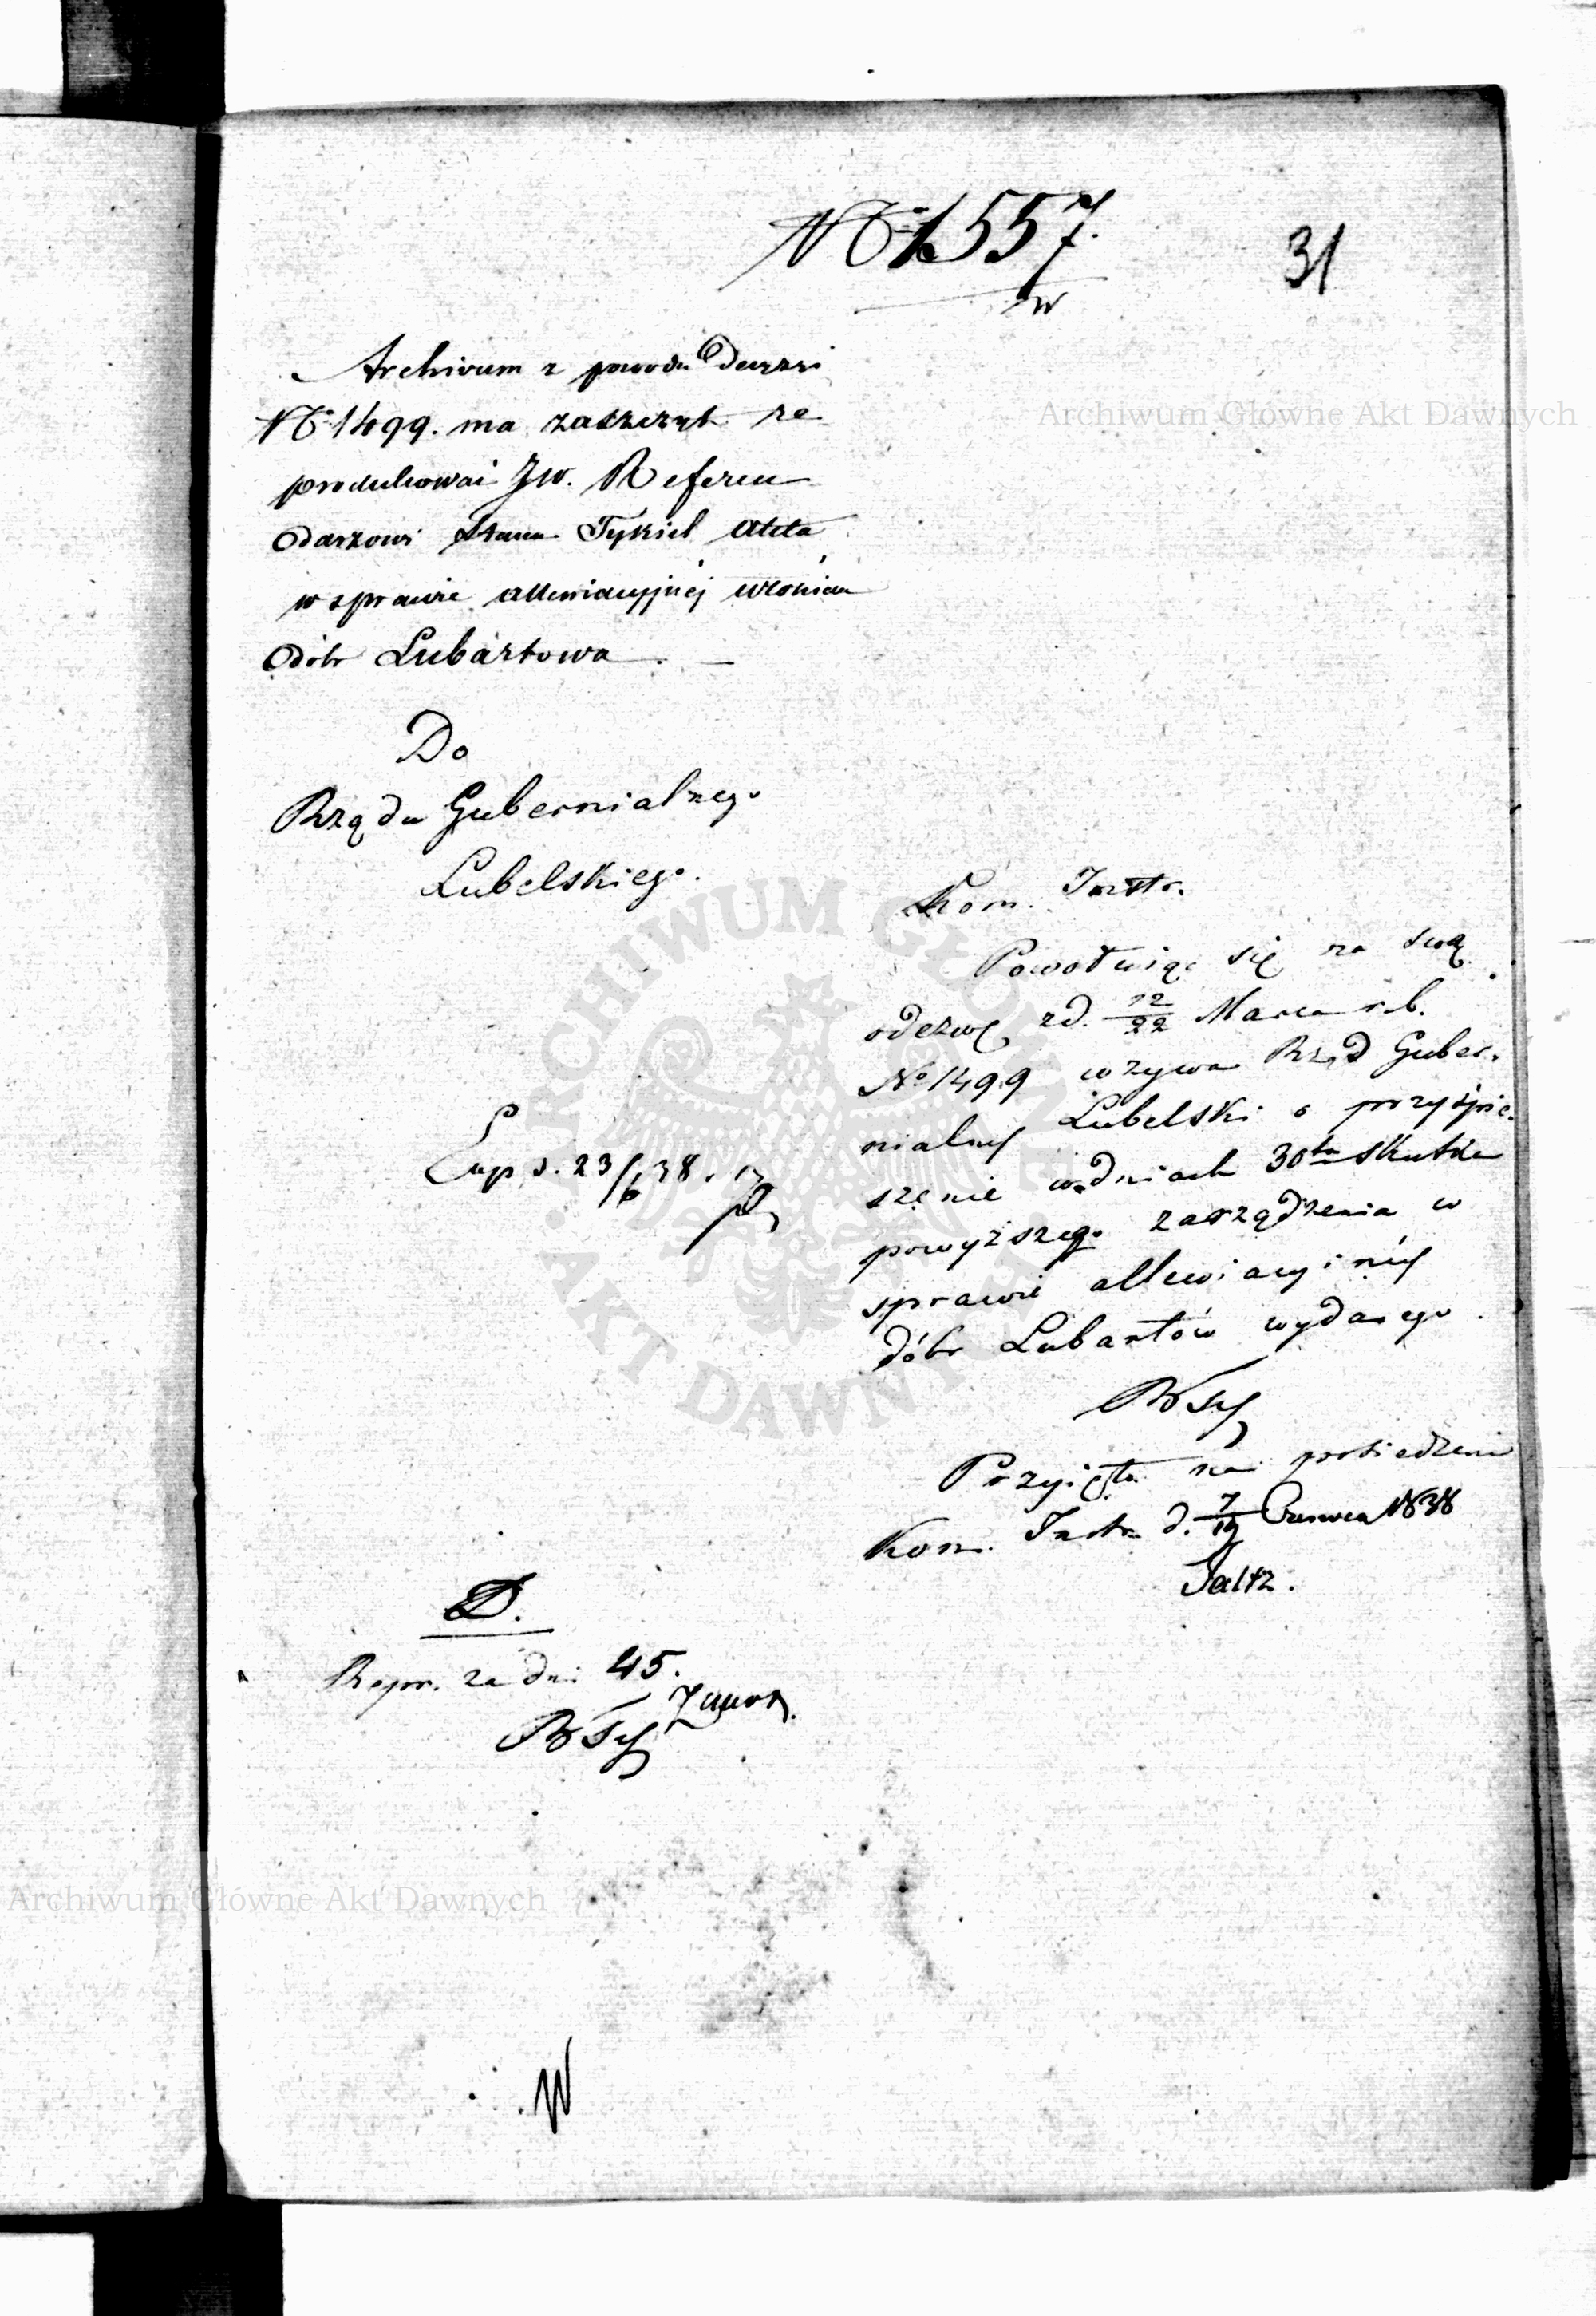 No 1557.
W
31
Archivum z powodu Decyzyi
No 1499. ma zaszczyt re
produkować JW. Referen
darzowi Stanu Tykiel Akta
w sprawie allewiacyjnéj włościan
dóbr Lubartowa. —
Do
Rządu Gubernialnego
Lubelskiego.
Kom. Instr.
Powołując się na swą
odezwę z d. 12/22 Marca r. b.
No 1499 wzywa Rząd Guber-
nialny Lubelski o przyśpie-
szenie w dniach 30tu skutku
powyższego zarządzenia w
sprawie allewiacyinéy
dóbr Lubartów wydanego.
Exp d. 23/6 38.
Przyięta na posiedzeniu
Kom. Instr. d. 7/19 Czerwca 1838
D.
Repr. za dni 45.
W
Archiwum Główne Akt Dawnych
Archiwum Główne Akt Dawnych
ARCHIWUM GŁÓWNE
AKT DAWNYCH